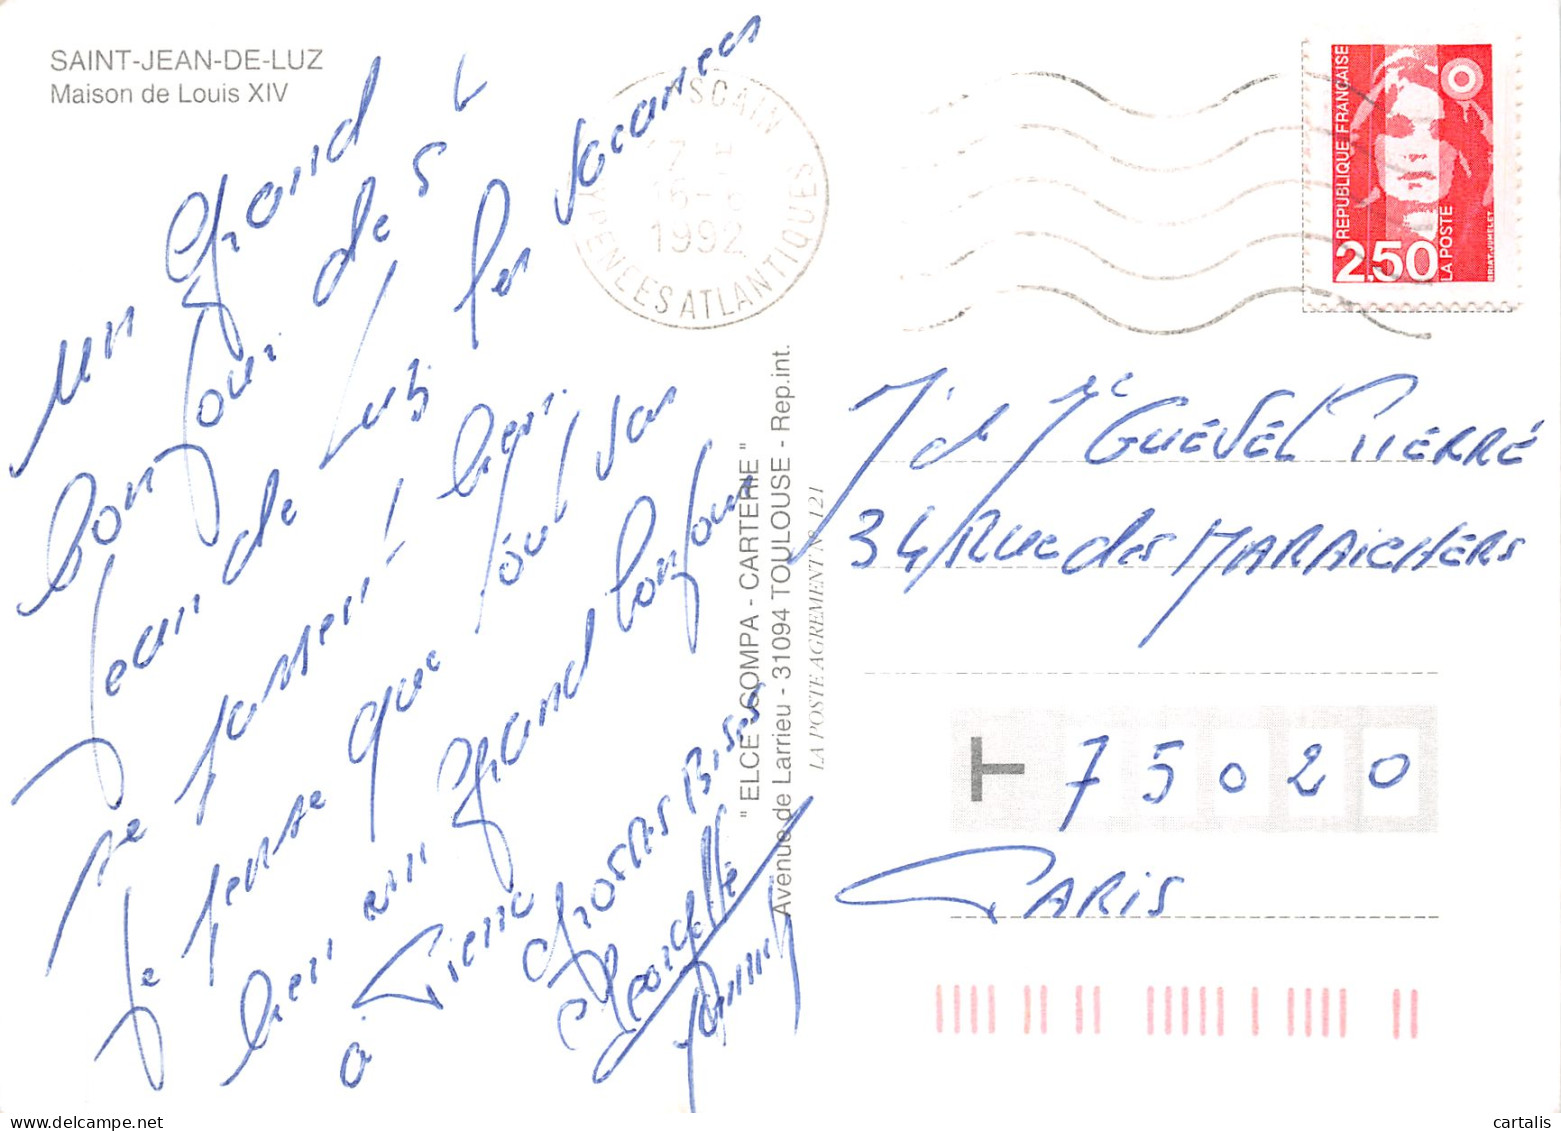 SAINT-JEAN-DE-LUZ
Maison de Louis XIV
un grand
bonjour de St
Jean de Luz les vacances
se passent bien
je pense que pour vous
bien un grand bonjour
a Pierre grosses Bises
ASCAIN
1992
PYRENEES ATLANTIQUES
REPUBLIQUE FRANÇAISE
2,50
LA POSTE
BRIAT-JUMELET
" ELCE COMPA - CARTERIE "
Avenue de Larrieu - 31094 TOULOUSE - Rep.int.
LA POSTE AGREMENT N° 121
GUEVEL PIERRE
34 Rue des MARAICHERS
T 75020
PARIS
cartalis